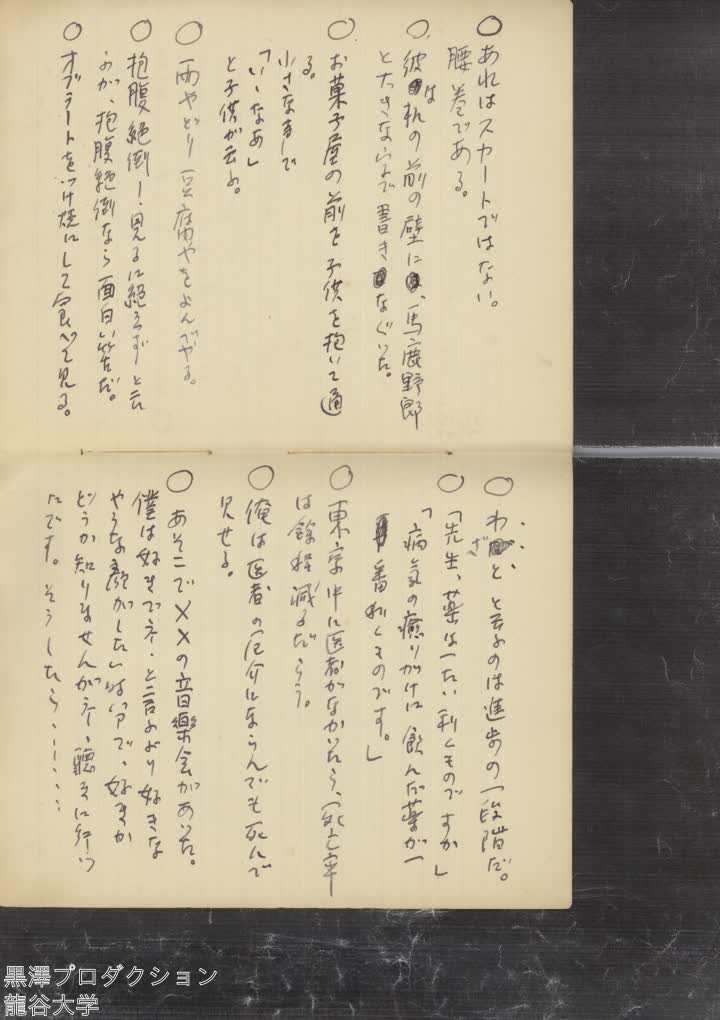 ○あれはスカートではない。
腰巻である。
○彼は
れの前の壁に、馬鹿野郎
と大きな字で書きなぐった。
○お菓子屋の前を子供を抱いて通
る。
小さな声で
「いゝなあ」
と子供が云ふ。
○雨やどり豆腐やをよんでやる。
○抱腹絶倒ー見るに絶えずと云
ふが、抱腹絶倒なら面白い筈だ。
○オブラートをつけ焼にして食べて見る。
○わざと、と云ふのは進歩の一段階だ。
○「先生、薬は一たい利くものですか」
「病気の癒りがけに飲んだ薬が一
番利くものです。」
○東京中に医者がなかったら、死亡率
は餘程減るだらう。
○俺は医者の厄介にならんでも死んで
見せる。
○あそこで××の音樂会があった。
僕は好きでネ、と言ふより好きな
やうな顔がしたい
で、好きか
どうか知りませんがネ、聴きに行っ
たです。そうしたら、ー・・・・
黒澤プロダクション
龍谷大学